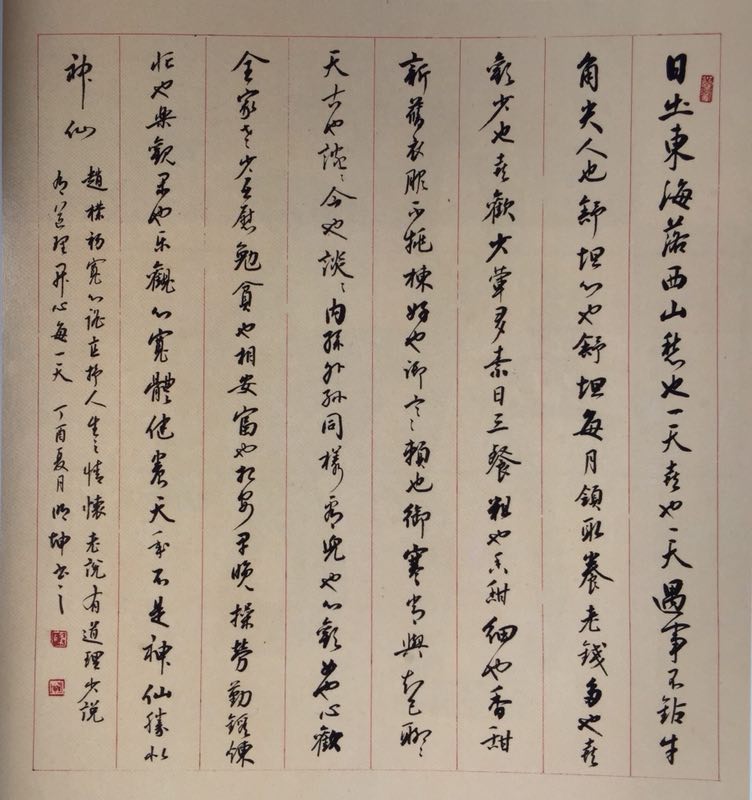 日出東海落西山愁也一天喜也一天遇事不鈷牛
角尖人也舒坦心也舒坦每月領取養老錢多也喜
歡少也喜歡少葷多素日三餐粗也香甜細也香甜
新舊衣服不挑揀好也御寒賴也御寒常與知己聊聊
天古也談談今也談談内孫外孫同樣看兒也心歡女也心歡
全家老少互慰勉貧也相安富也相安早晚操勞勤鍛鍊
忙也樂觀閑也樂觀心寬體健養天年不是神仙勝似
神仙
趙樸初寬心謠直抒人生之情懷老說有道理少說
有道理開心每一天 丁酉夏月 坤書之